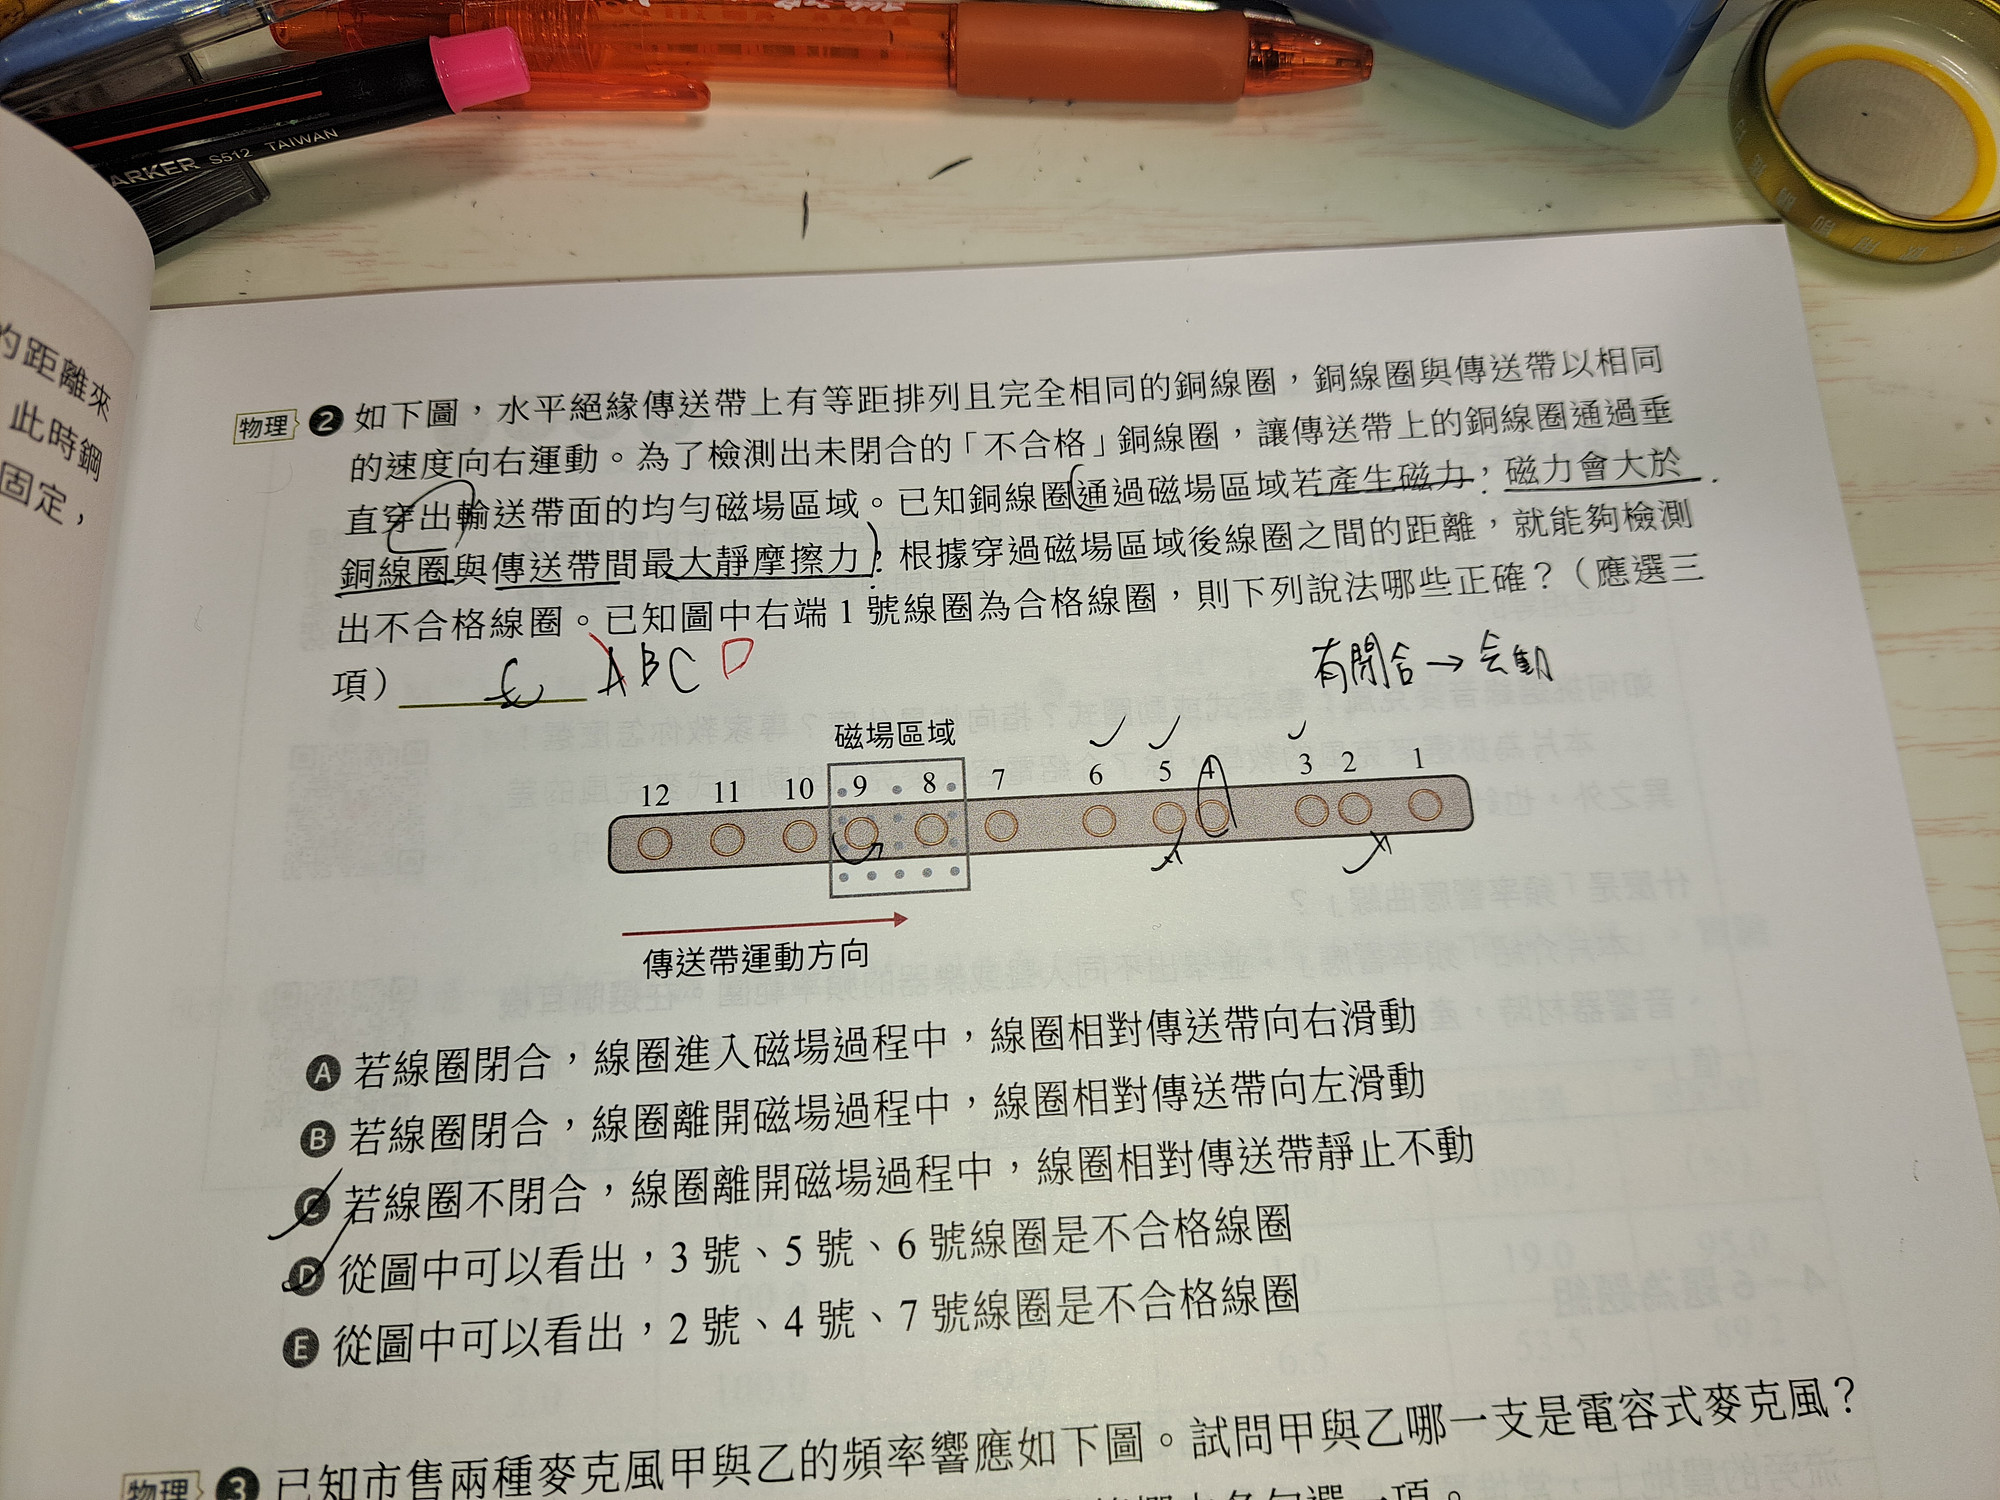 MARKER S512 TAIWAN
的距離來
此時鋼
固定，
物理 2 如下圖，水平絕緣傳送帶上有等距排列且完全相同的銅線圈，銅線圈與傳送帶以相同
的速度向右運動。為了檢測出未閉合的「不合格」銅線圈，讓傳送帶上的銅線圈通過垂
直穿出輸送帶面的均勻磁場區域。已知銅線圈通過磁場區域若產生磁力，磁力會大於
銅線圈與傳送帶間最大靜摩擦力；根據穿過磁場區域後線圈之間的距離，就能夠檢測
出不合格線圈。已知圖中右端 1 號線圈為合格線圈，則下列說法哪些正確？（應選三
項）
A B C D
有閉合→会動
磁場區域
12 11 10 9 8 7 6 5 4 3 2 1
傳送帶運動方向
A 若線圈閉合，線圈進入磁場過程中，線圈相對傳送帶向右滑動
B 若線圈閉合，線圈離開磁場過程中，線圈相對傳送帶向左滑動
C 若線圈不閉合，線圈離開磁場過程中，線圈相對傳送帶靜止不動
D 從圖中可以看出，3 號、5 號、6 號線圈是不合格線圈
E 從圖中可以看出，2 號、4 號、7 號線圈是不合格線圈
物理 3 已知市售兩種麥克風甲與乙的頻率響應如下圖。試問甲與乙哪一支是電容式麥克風？
勾選一項。